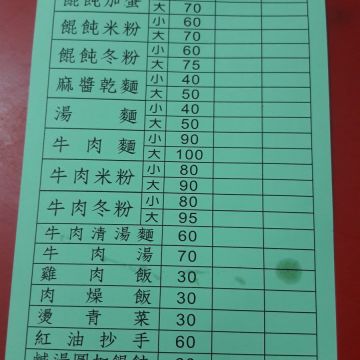 餛飩加蛋 大 70
餛飩米粉 小 60
大 70
餛飩冬粉 小 60
大 75
麻醬乾麵 小 40
大 50
湯麵 小 40
大 50
牛肉麵 小 90
大 100
牛肉米粉 小 80
大 90
牛肉冬粉 小 80
大 95
牛肉清湯麵 60
牛肉湯 70
雞肉飯 30
肉燥飯 30
燙青菜 30
紅油抄手 60
鹹湯圓加餛飩